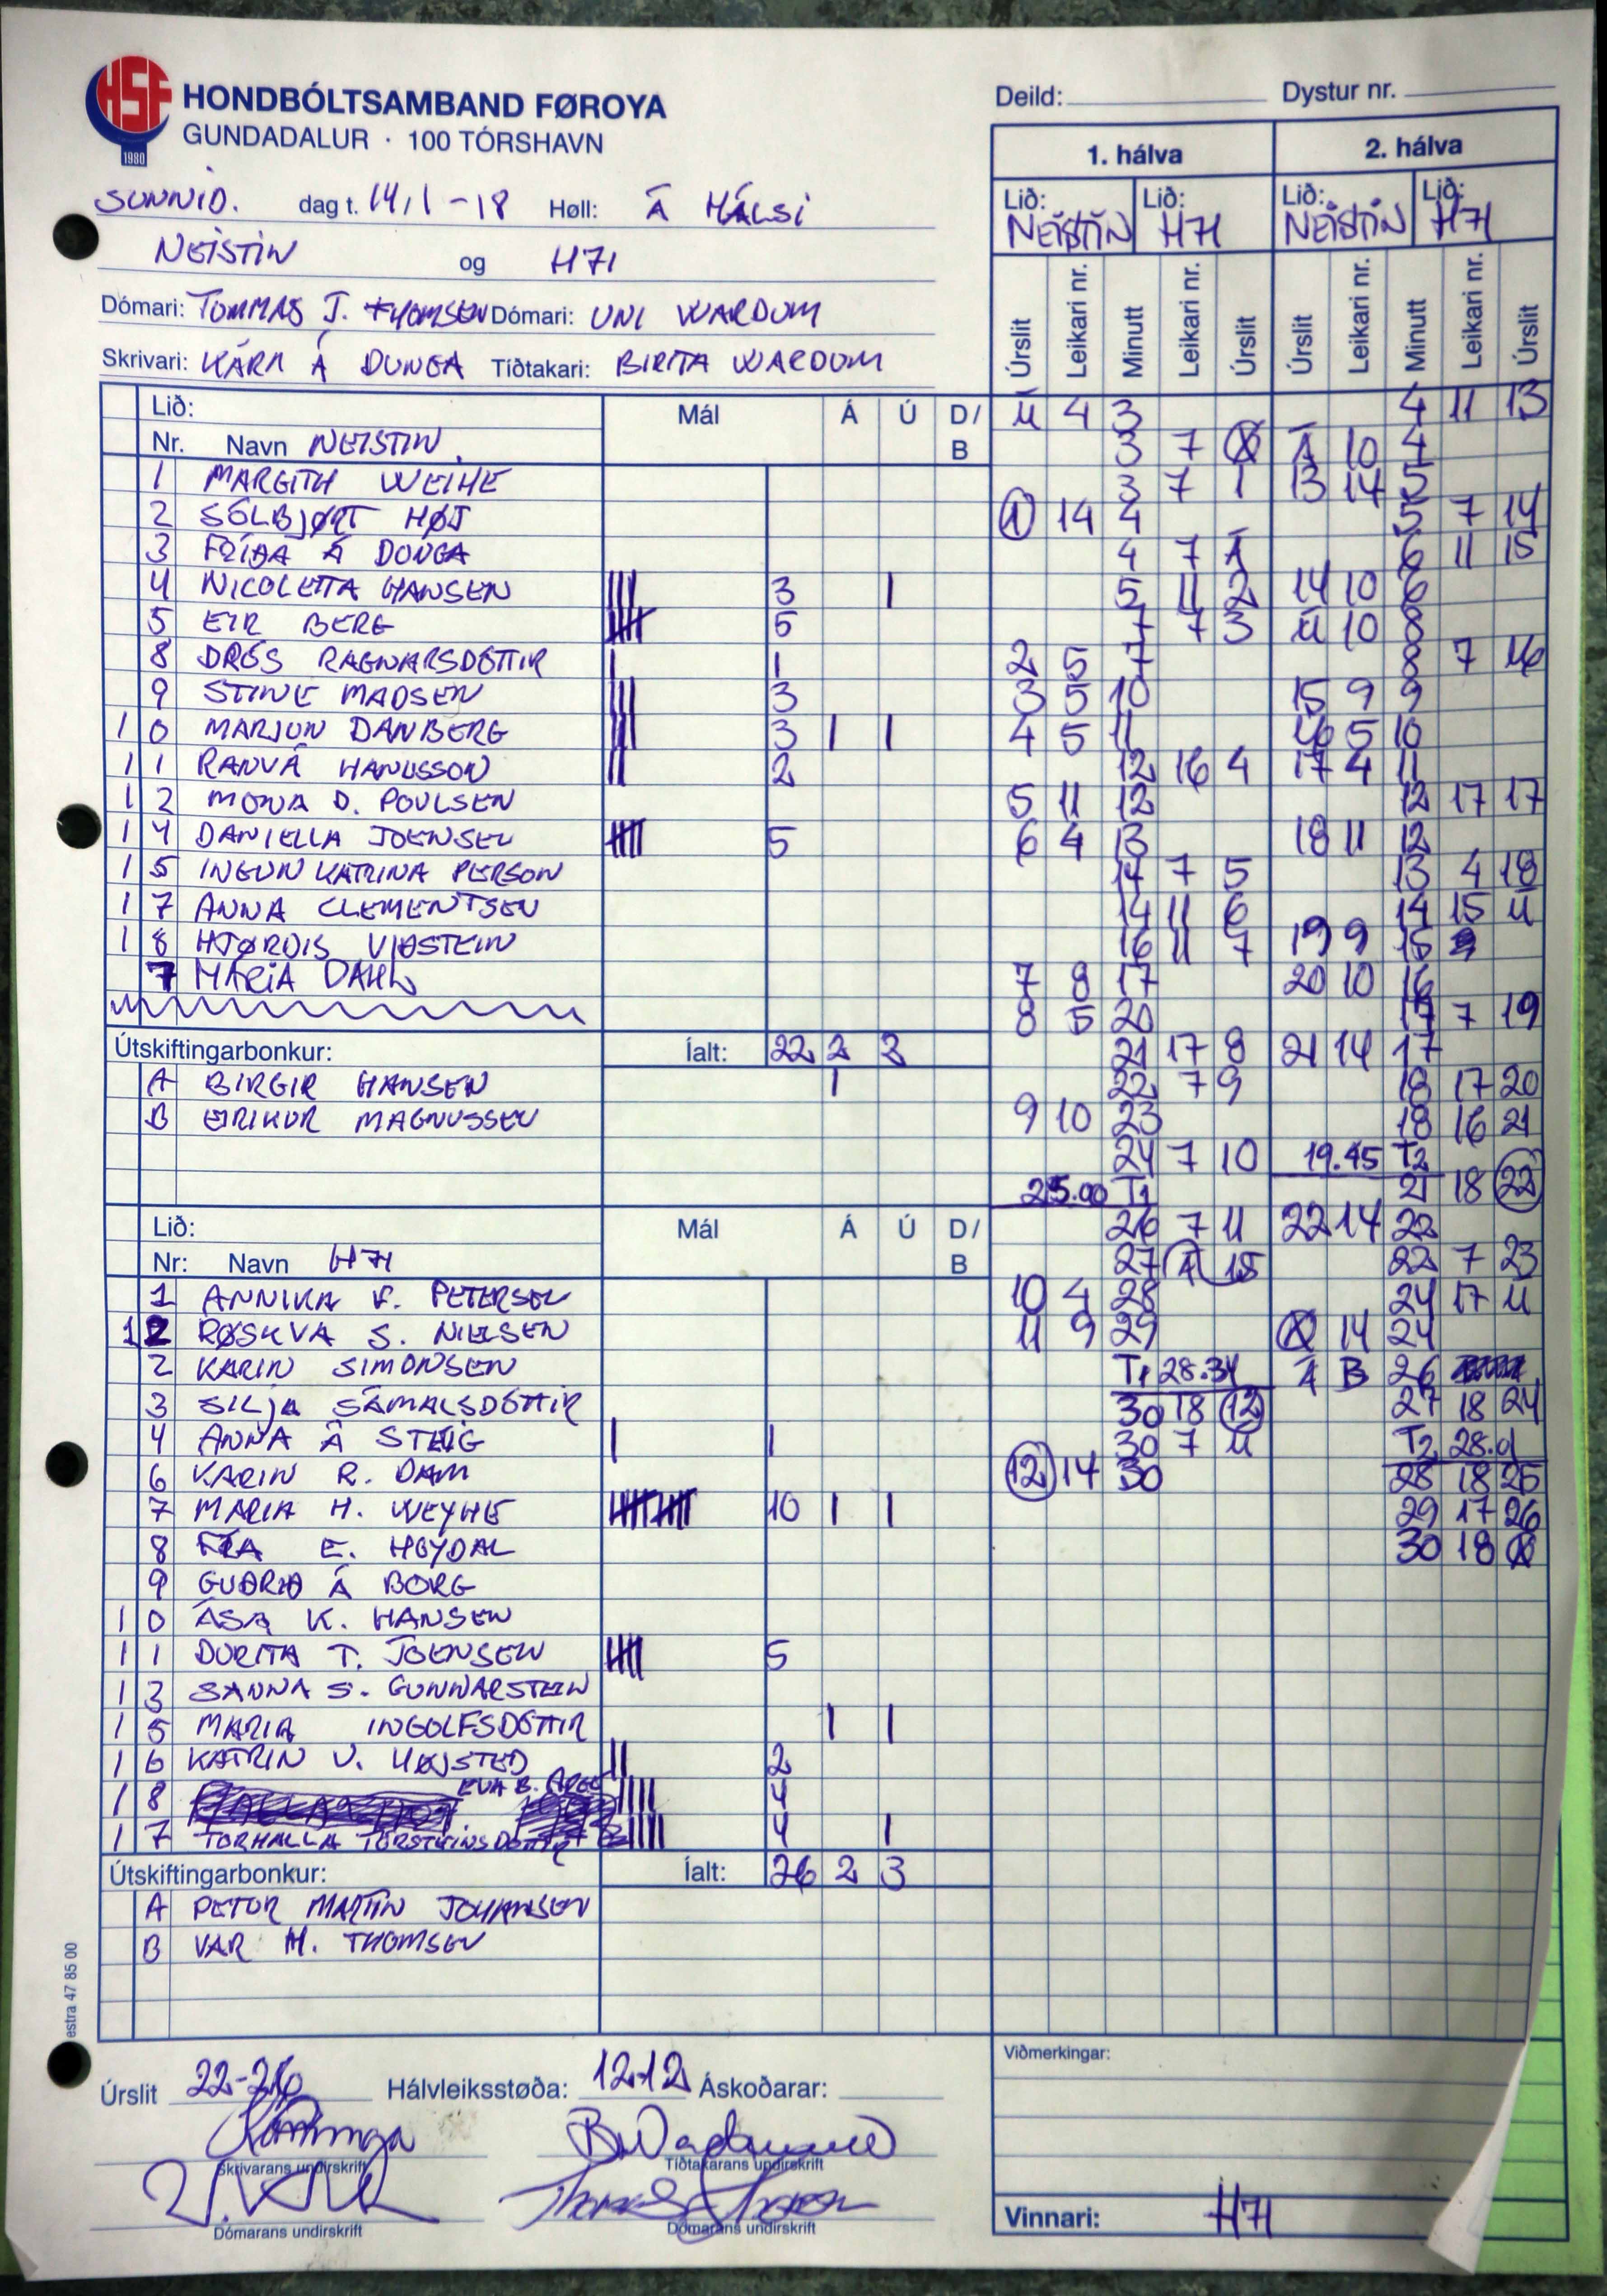 HSF
1980
HONDBÓLTSAMBAND FØROYA
GUNDADALUR · 100 TÓRSHAVN
Deild: Dystur nr.
SUNNID. dag t. 14/1-18 Høll: Á HÁLSI
NEISTIN og H71
Dómari: TOMMAS J. THOMSEN Dómari: UNI WARDUM
Skrivari: KÁRA Á DUNGA Tíðtakari: BIRITA WARDUM
Lið: Mál Á Ú D/
Nr. Navn NEISTIN B
1 MARGITH WEIHE
2 SÓLBJØRT HØJ
3 FRÍÐA Á DUNGA
4 NICOLETTA HANSEN ||| 3 |
5 EIR BERG 5
8 DRÓS RAGNARSDÓTTIR | 1
9 STINE MADSEN ||| 3
10 MARJUN DANBERG ||| 3 | |
11 RANVÁ HANUSSON || 2
12 MONA D. POULSEN
14 DANIELLA JOENSEN 5
15 INGUN KATRINA PERSON
17 ANNA CLEMENTSEN
18 HJØRDIS VIÐSTEIN
7 MARIA DAHL
Útskiftingarbonkur: Íalt: 22 2 2
A BIRGIR HANSEN |
B EIRIKUR MAGNUSSEN
Lið: Mál Á Ú D/
Nr: Navn H71 B
1 ANNIKA F. PETERSEN
12 RØSKVA S. NIELSEN
2 KARIN SIMONSEN
3 SILJA SÁMALSDÓTTIR
4 ANNA Á STEIG | 1
6 KARIN R. DAM
7 MARIA H. WEYHE 10 | |
8 E. HEYDAL
9 GUÐRIÐ Á BORG
10 ÁSA K. HANSEN
11 DURITA T. JOENSEN 5
13 SANNA S. GUNNARSTEIN
15 MARIA INGOLFSDÓTTIR | |
16 KATRIN V. HØJSTED || 2
18 EVA B. |||| 4
17 TORHALLA TORSTEINSDÓTTIR |||| 4 |
Útskiftingarbonkur: Íalt: 26 2 3
A PETUR MARTIN JOHANSEN
B VAR M. THOMSEN
estra 47 85 00
Úrslit 22-26 Hálvleiksstøða: 12-12 Áskoðarar:
Skrivarans undirskrift Tíðtakarans undirskrift
Dómarans undirskrift Dómarans undirskrift
1. hálva 2. hálva
Lið: Lið: Lið: Lið:
NEISTIN H71 NEISTIN H71
Úrslit Leikari nr. Minutt Leikari nr. Úrslit Úrslit Leikari nr. Minutt Leikari nr. Úrslit
Ú 4 3 4 11 13
3 7 Á 10 4
3 7 1 13 14 5
1 14 4 5 7 14
4 7 Á 6 11 15
5 11 2 14 10 6
7 7 3 Ú 10 8
2 5 7 8 7 16
3 5 10 15 9 9
4 5 11 16 5 10
12 16 4 17 4 11
5 11 12 12 17 17
6 4 13 18 11 12
14 7 5 13 4 18
14 11 6 14 15 Ú
16 11 7 19 9 15
7 8 17 20 10 16
8 5 20 17 7 19
21 17 8 21 14 17
22 7 9 18 17 20
9 10 23 18 16 21
24 7 10 19.45 T2
25.00 T1 21 18 22
26 7 11 22 14 22
27 Á 15 22 7 23
10 4 28 24 17 Ú
11 9 29 14 24
T1 28.34 Á B 26
30 18 12 27 18 24
30 7 Ú T2 28.
12 14 30 28 18 25
29 17 26
30 18
Viðmerkingar:
Vinnari: H71